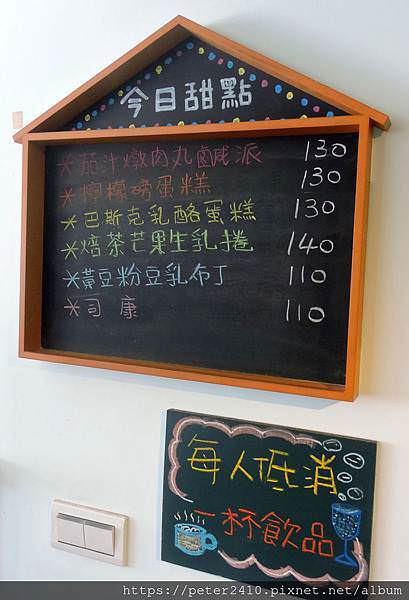 今日甜點
*茄汁燉肉丸鹹派 130
*檸檬磅蛋糕 130
*巴斯克乳酪蛋糕 130
*焙茶芒果生乳捲 140
*黃豆粉豆乳布丁 110
*司康 110
每人低消
一杯飲品
https://peter2410.pixnet.net/album